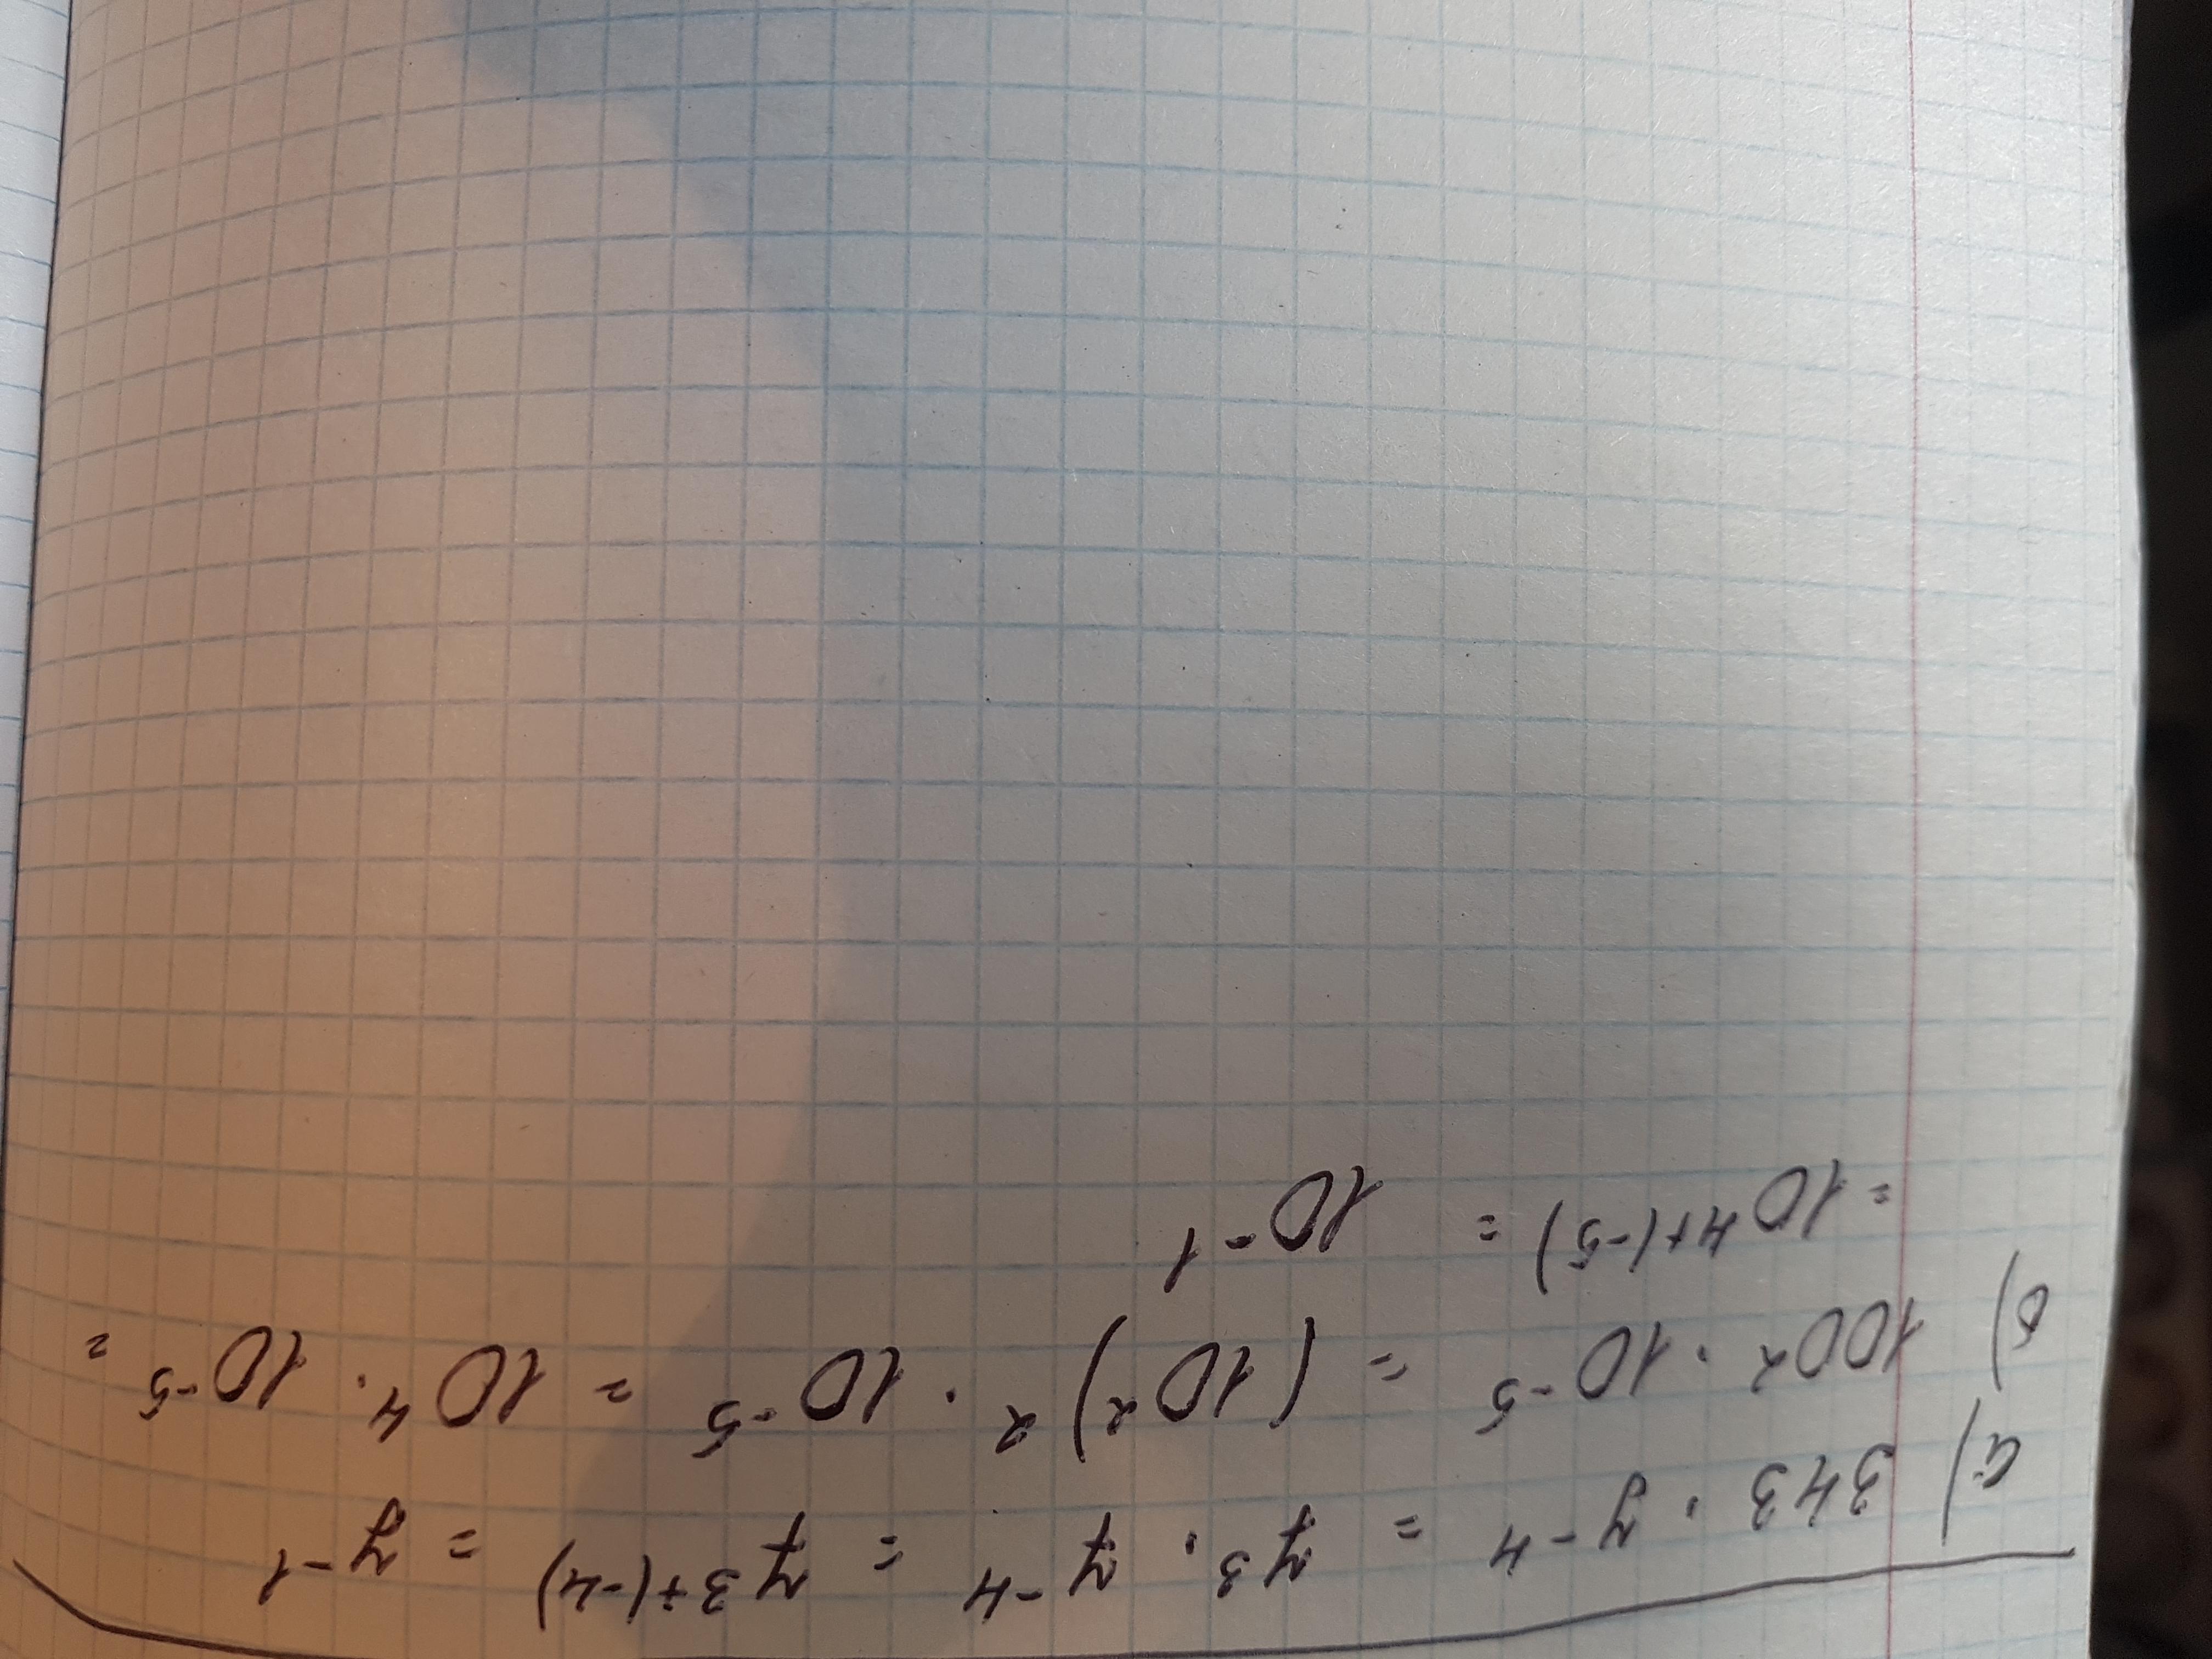 а) 343 · 7⁻⁴ = 7³ · 7⁻⁴ = 7³⁺⁽⁻⁴⁾ = 7⁻¹
б) 100² · 10⁻⁵ = (10²)² · 10⁻⁵ = 10⁴ · 10⁻⁵ =
= 10⁴⁺⁽⁻⁵⁾ = 10⁻¹